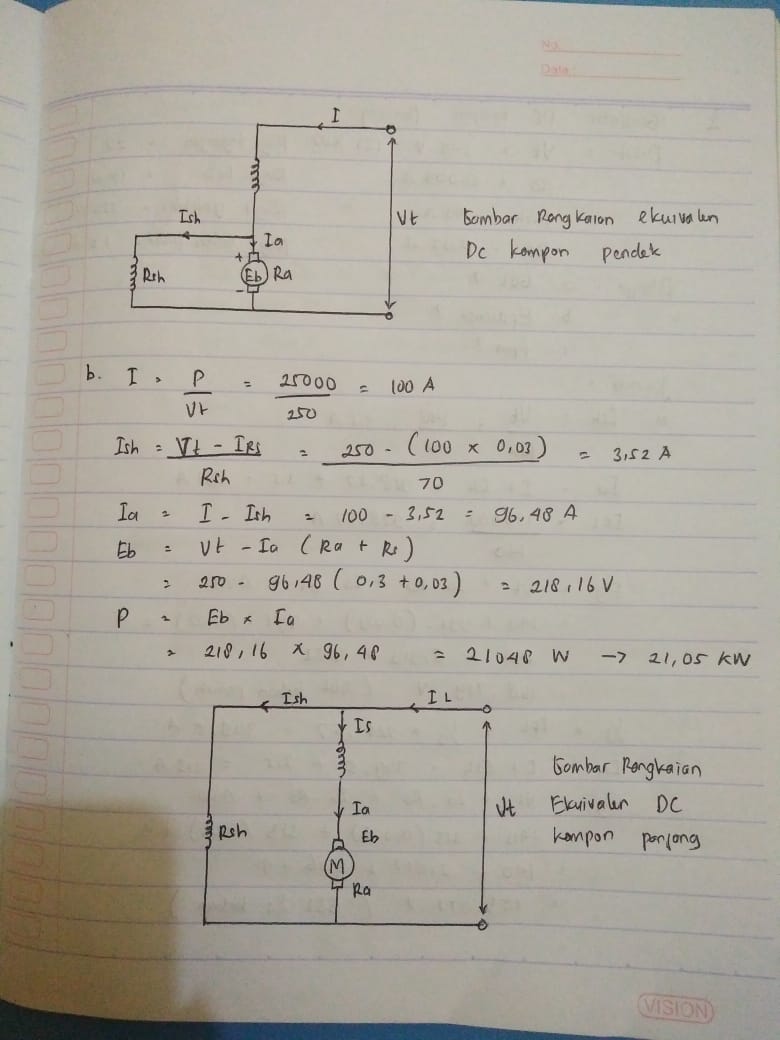 No.
Date:
I
Ish
Vt
Gambar Rangkaian ekuivalen
Ia
DC kompon pendek
Rsh
+
Eb
Ra
-
b. I = P / Vt = 25000 / 250 = 100 A
Ish = Vt - IRs / Rsh = 250 - (100 x 0,03) / 70 = 3,52 A
Ia = I - Ish = 100 - 3,52 = 96,48 A
Eb = Vt - Ia (Ra + Rs)
= 250 - 96,48 (0,3 + 0,03) = 218,16 V
P = Eb x Ia
= 218,16 x 96,48 = 21048 W -> 21,05 kW
Ish
IL
Is
Gambar Rangkaian
Ia
Vt
Ekuivalen DC
Rsh
Eb
kompon panjang
M
Ra
VISION